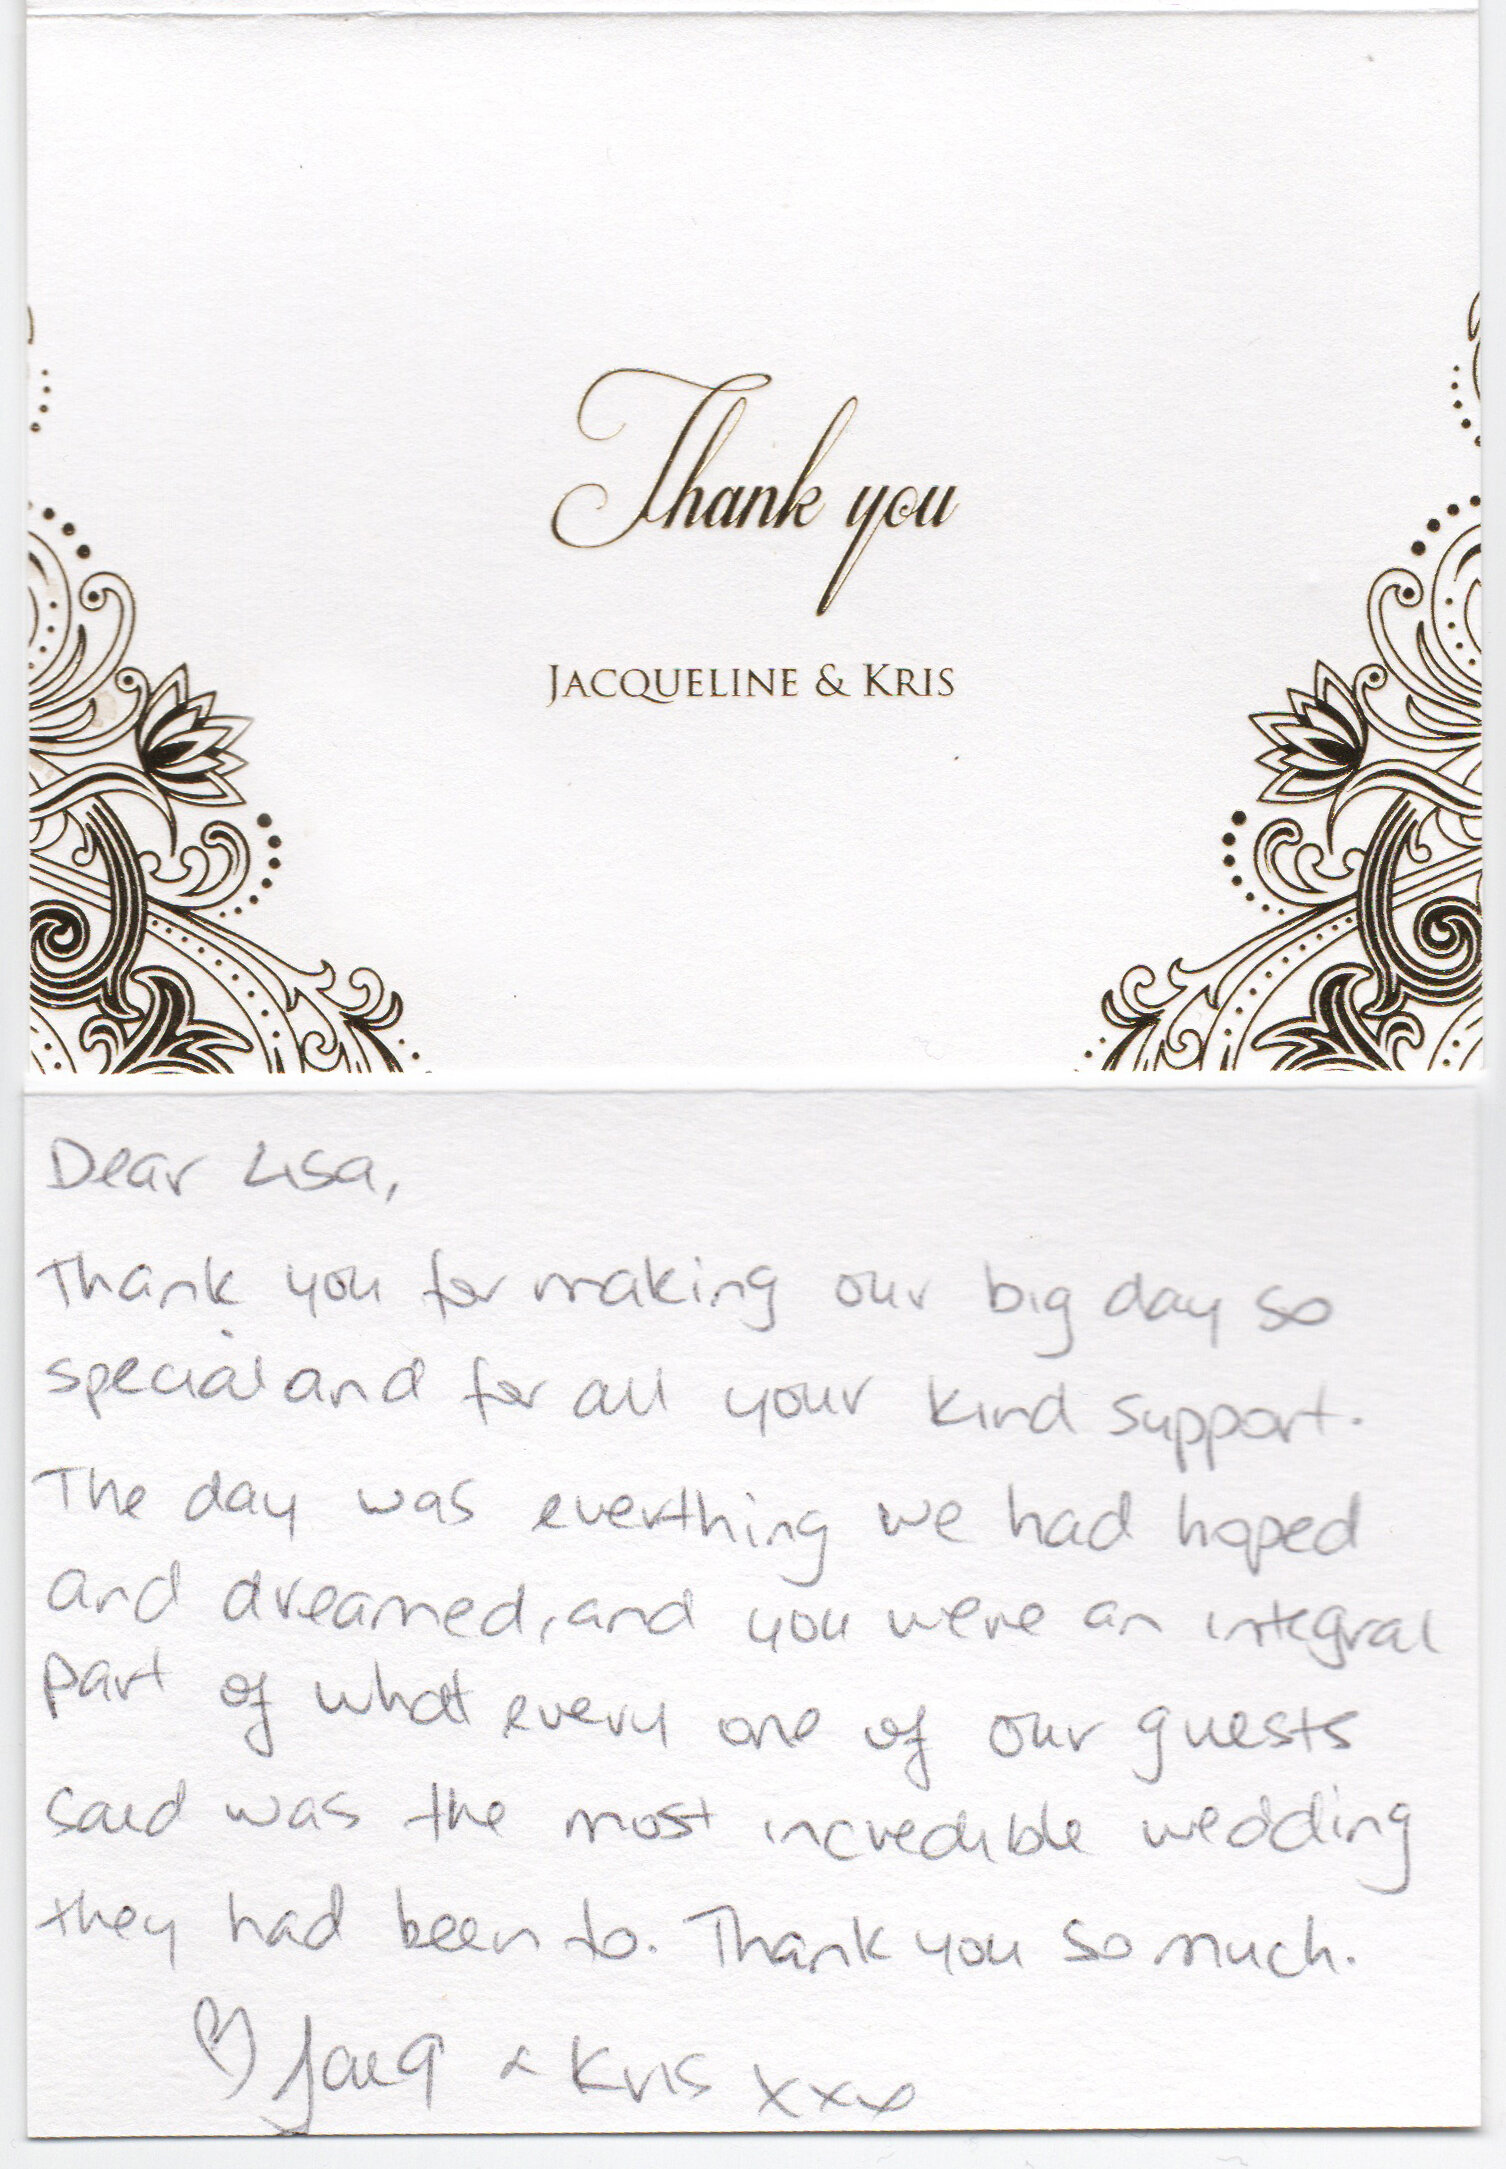 Thank you
JACQUELINE & KRIS
Dear Lisa,
Thank you for making our big day so
special and for all your kind support.
The day was everthing we had hoped
and dreamed, and you were an integral
part of what every one of our guests
said was the most incredible wedding
they had been to. Thank you so much.
♡ Jacq & Kris xxx